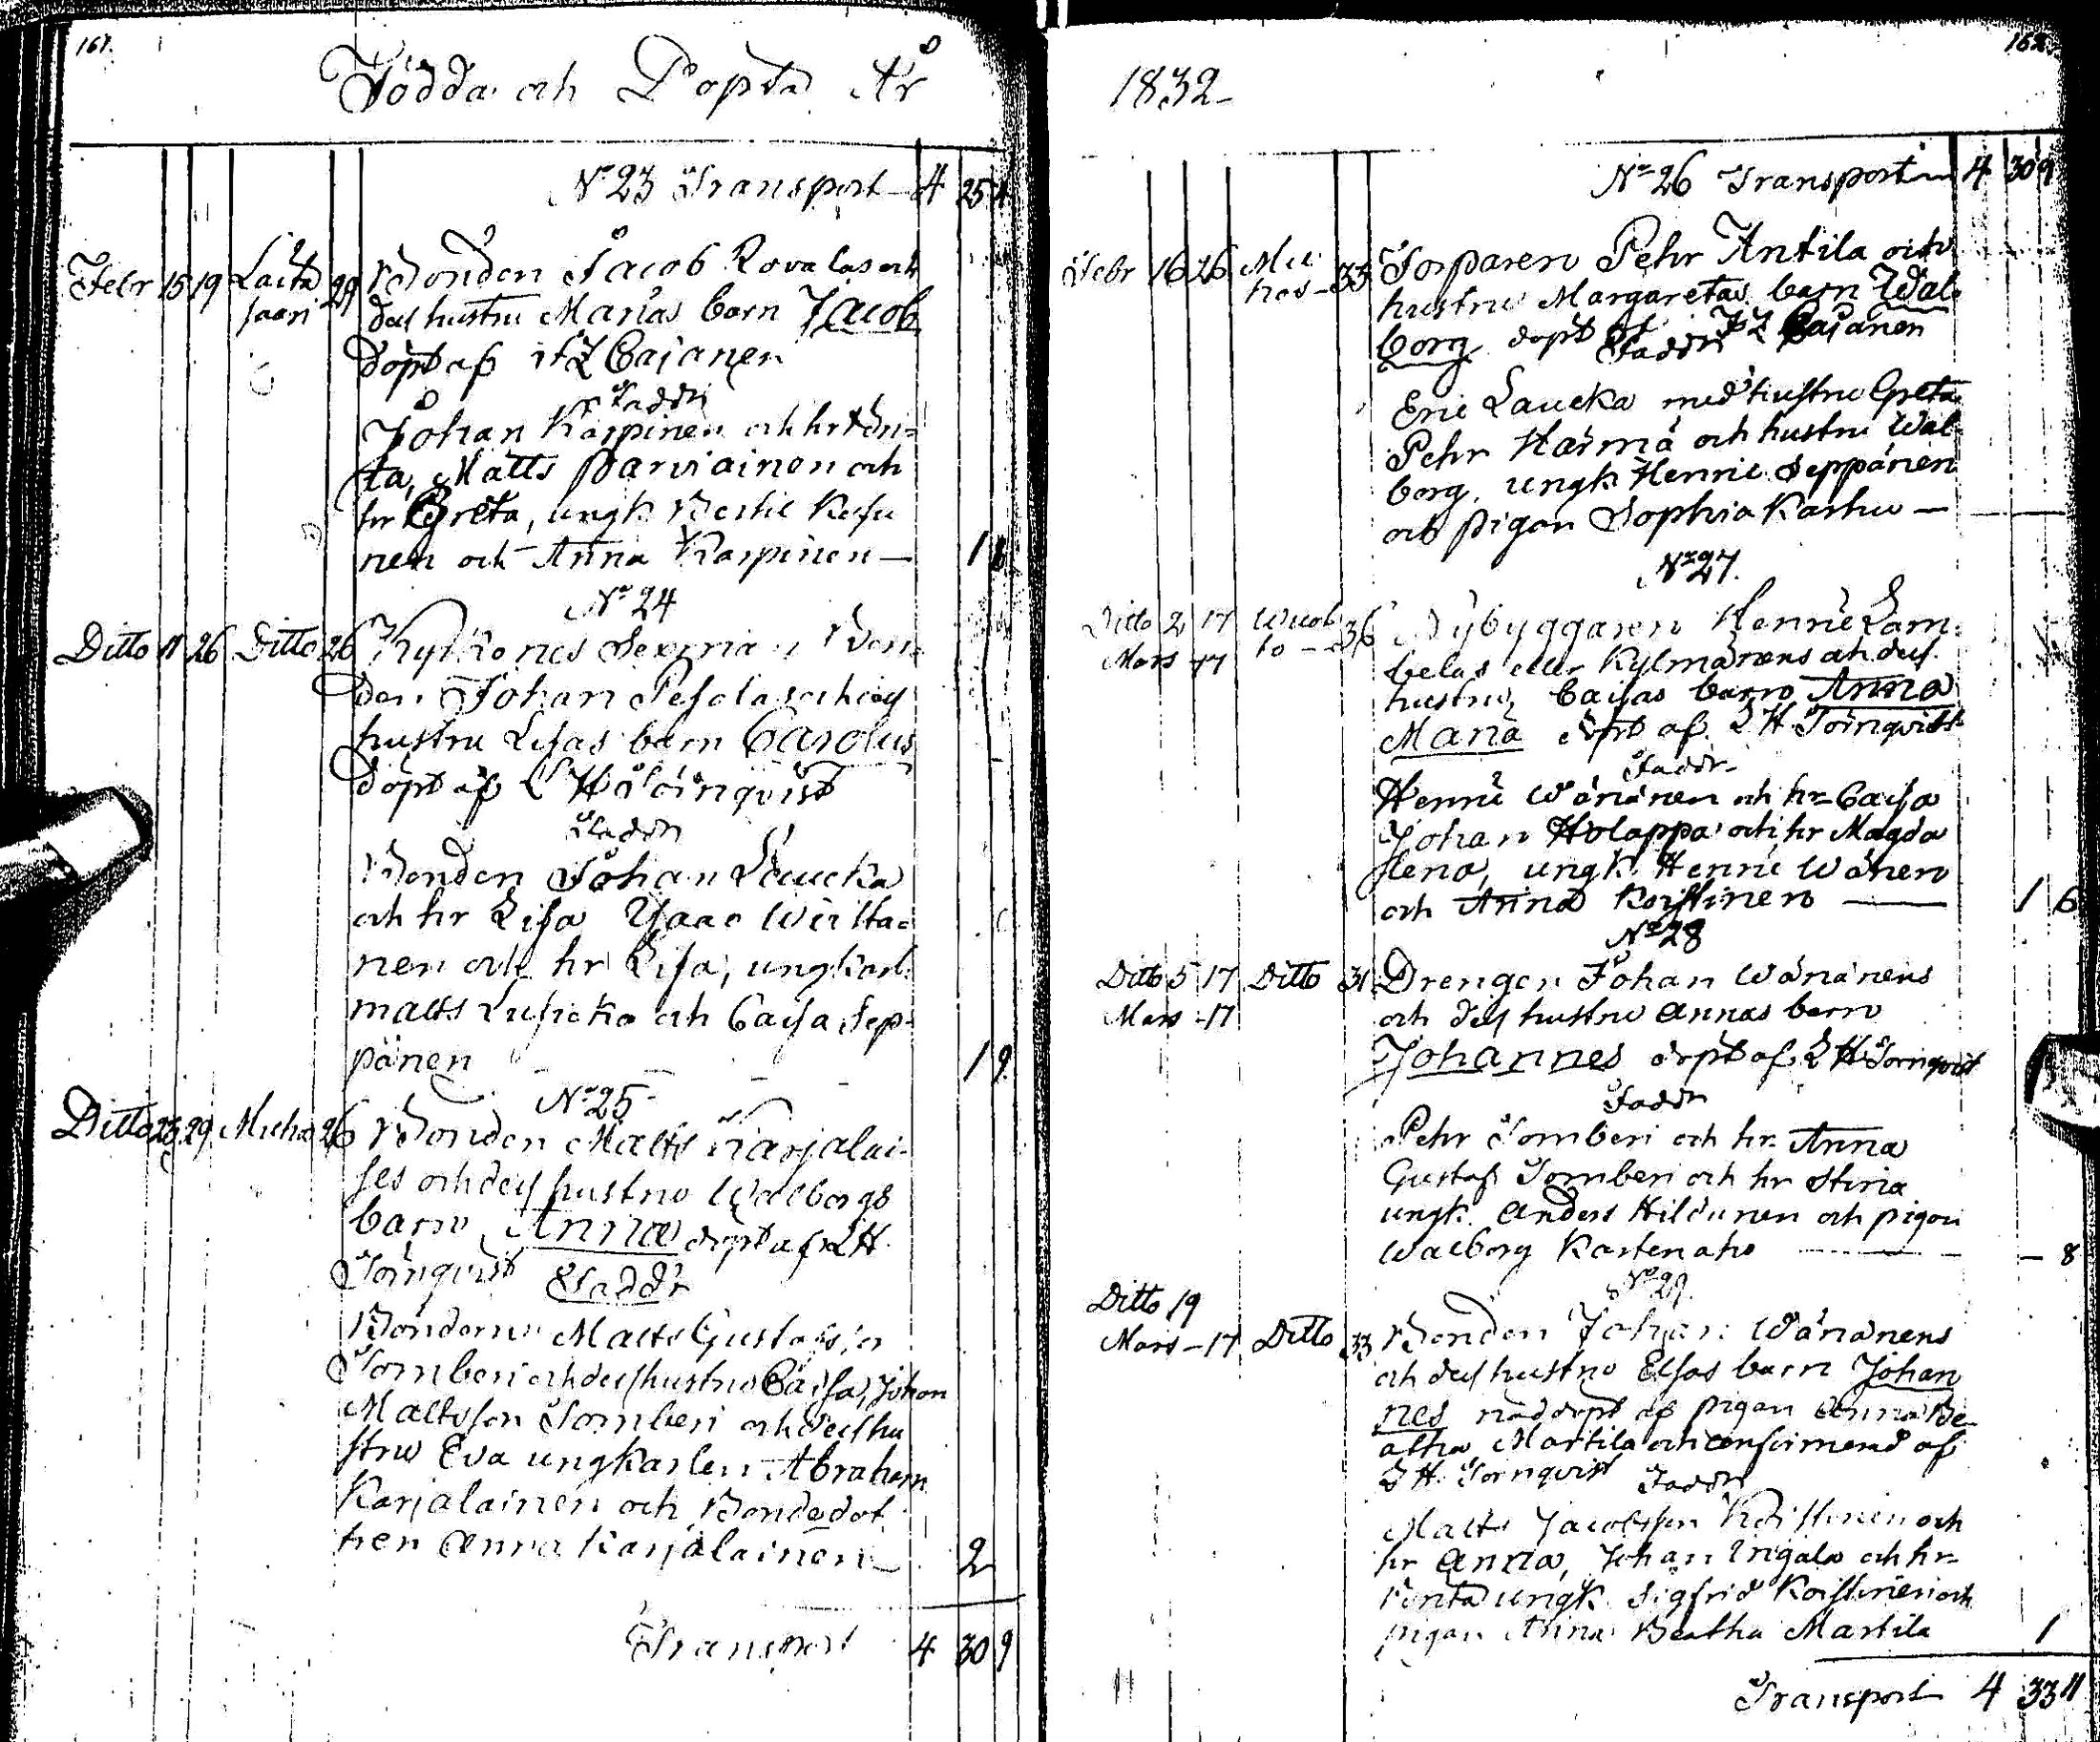 161.
Födda och Döpta År
No 23 Transport — 4 25 4
Febr 15 19 Laita 29 Bonden Jacob Rovalas och
saari dess hustru Marias barn Jacob
döpt af F Z Cajanen
Faddr
Johan Karpinen och hr
Matts Parviainen och
hr Greta, ungk
nen och Anna Karpinen — 1
No 24
Ditto 11 26 Ditto 26 Kyrkones Bon=
den Johan Pesolas och dess
hustru Lisas barn Carolus
döpt af L H Törnqvist
Faddr
Bonden Johan Laucka
och hr Lisa Isaac
nen och hr Lisa, ungkarl
Matts och Caisa Sep=
pänen 1 9
No 25
Ditto 23 29 Micho 26 Bonden Matts Karjalai=
ses och dess hustru Walborgs
barn Anna döpt af L H
Törnqvist Faddr
Bönderne Matts Gustafs:n
Tornberi och dess hustru Caisa, Johan
Mattsson Tornberi och dess hu
stru Eva ungkarlen Abraham
Karjalainen och Bondedot
tren Anna Karjalainen — 2
Transport 4 30 9
162.
1832 –
No 26 Transport — 4 30 9
Febr 16 26 Mic 33 Torparen Pehr Antila och
hos – hustru Margaretas barn Wal=
borg döpt af F Z Cajanen
Faddr
Eric Laucka med hustru Greta
Pehr Härmä och hustru Wal=
borg, ungk Henric Seppänen
och pigan Sophia Karhu —
No 27.
Ditto 2 17 Wuok 36 Nybyggaren Henric Lam=
Mars 17 to – belas eller Kylmänens och dess
hustru Caisas barn Anna
Maria döpt af L H Törnqvist
Faddr
Henric Wänänen och hr Caisa
Johan Holappa och hr Magda
lena, ungk. Henric Wänen
och Anna Koistinen — 1 6
No 28
Ditto 5 17 Ditto 31 Drengen Johan Wänänens
Mars – 17 och dess hustru Annas barn
Johannes döpt af L H Törnqvist
Faddr
Pehr Tornberi och hr. Anna
Gustaf Tornberi och hr Stina
ungk. Anders Hildunen och pigan
Walborg Kortenaho — – 8
No 29.
Ditto 19
Mars – 17 Ditto 33 Bonden Johan Wänänens
och dess hustru Elsas barn Johan
nes nöddöpt af pigan Anna Be
atha Martila och confirmerad af
L H. Törnqvist Faddr
Matts Jacobsson Koistinen och
hr Anna, Johan och hr
ungk. Sigfrid Koistinen och
pigan Anna Beatha Martila 1
Transport 4 33 11